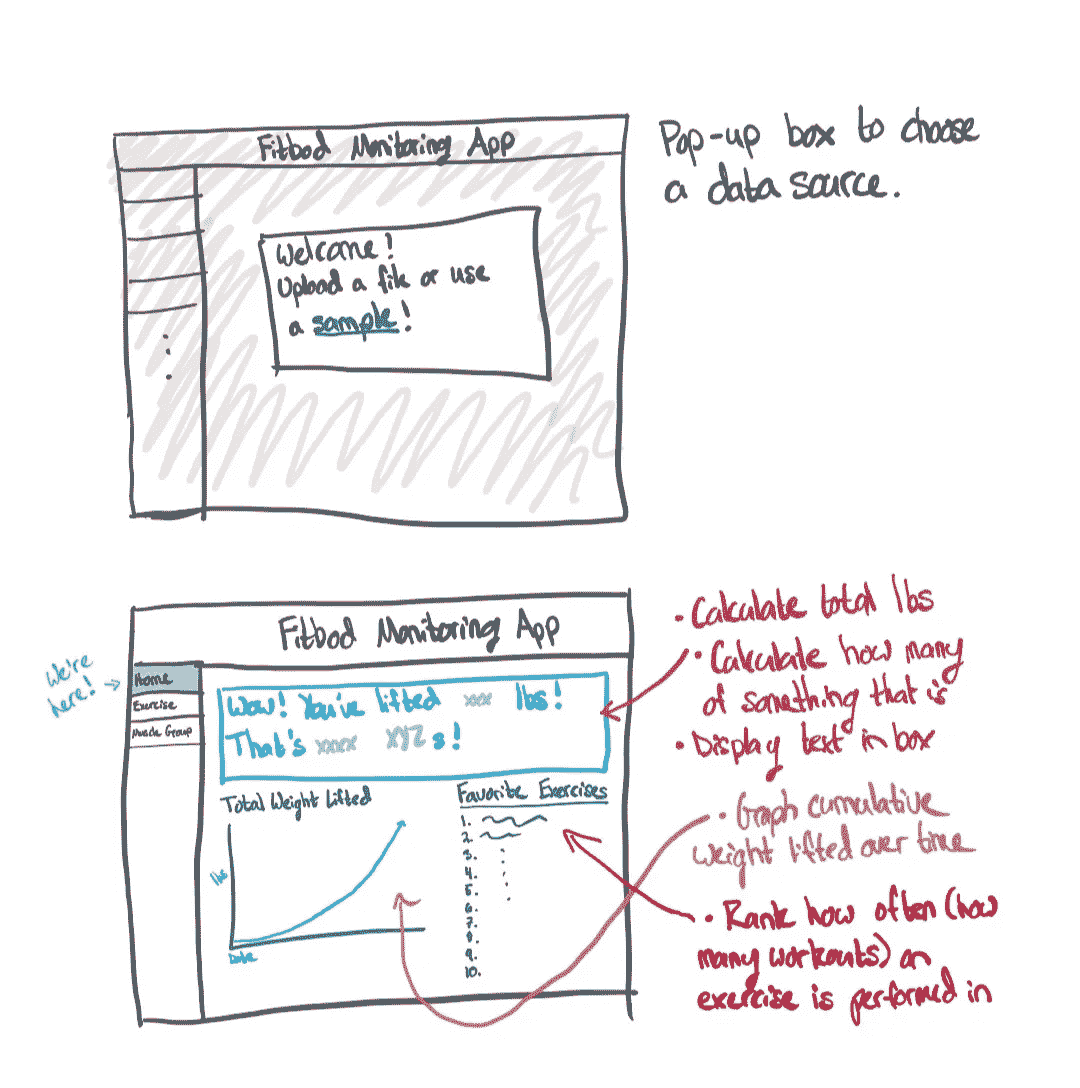 Fitbod Monitoring App
Pop-up box to choose
a data source.
Welcome!
Upload a file or use
a sample!
Fitbod Monitoring App
We're
here!
Home
Exercise
Muscle Group
Wow! You've lifted xxx lbs!
That's xxxx xyz s!
Total Weight Lifted
lbs
Date
Favorite Exercises
1.
2.
3.
4.
5.
6.
7.
8.
9.
10.
• Calculate total lbs
• Calculate how many
of something that is
• Display text in box
• Graph cumulative
weight lifted over time
• Rank how often (how
many workouts) an
exercise is performed in